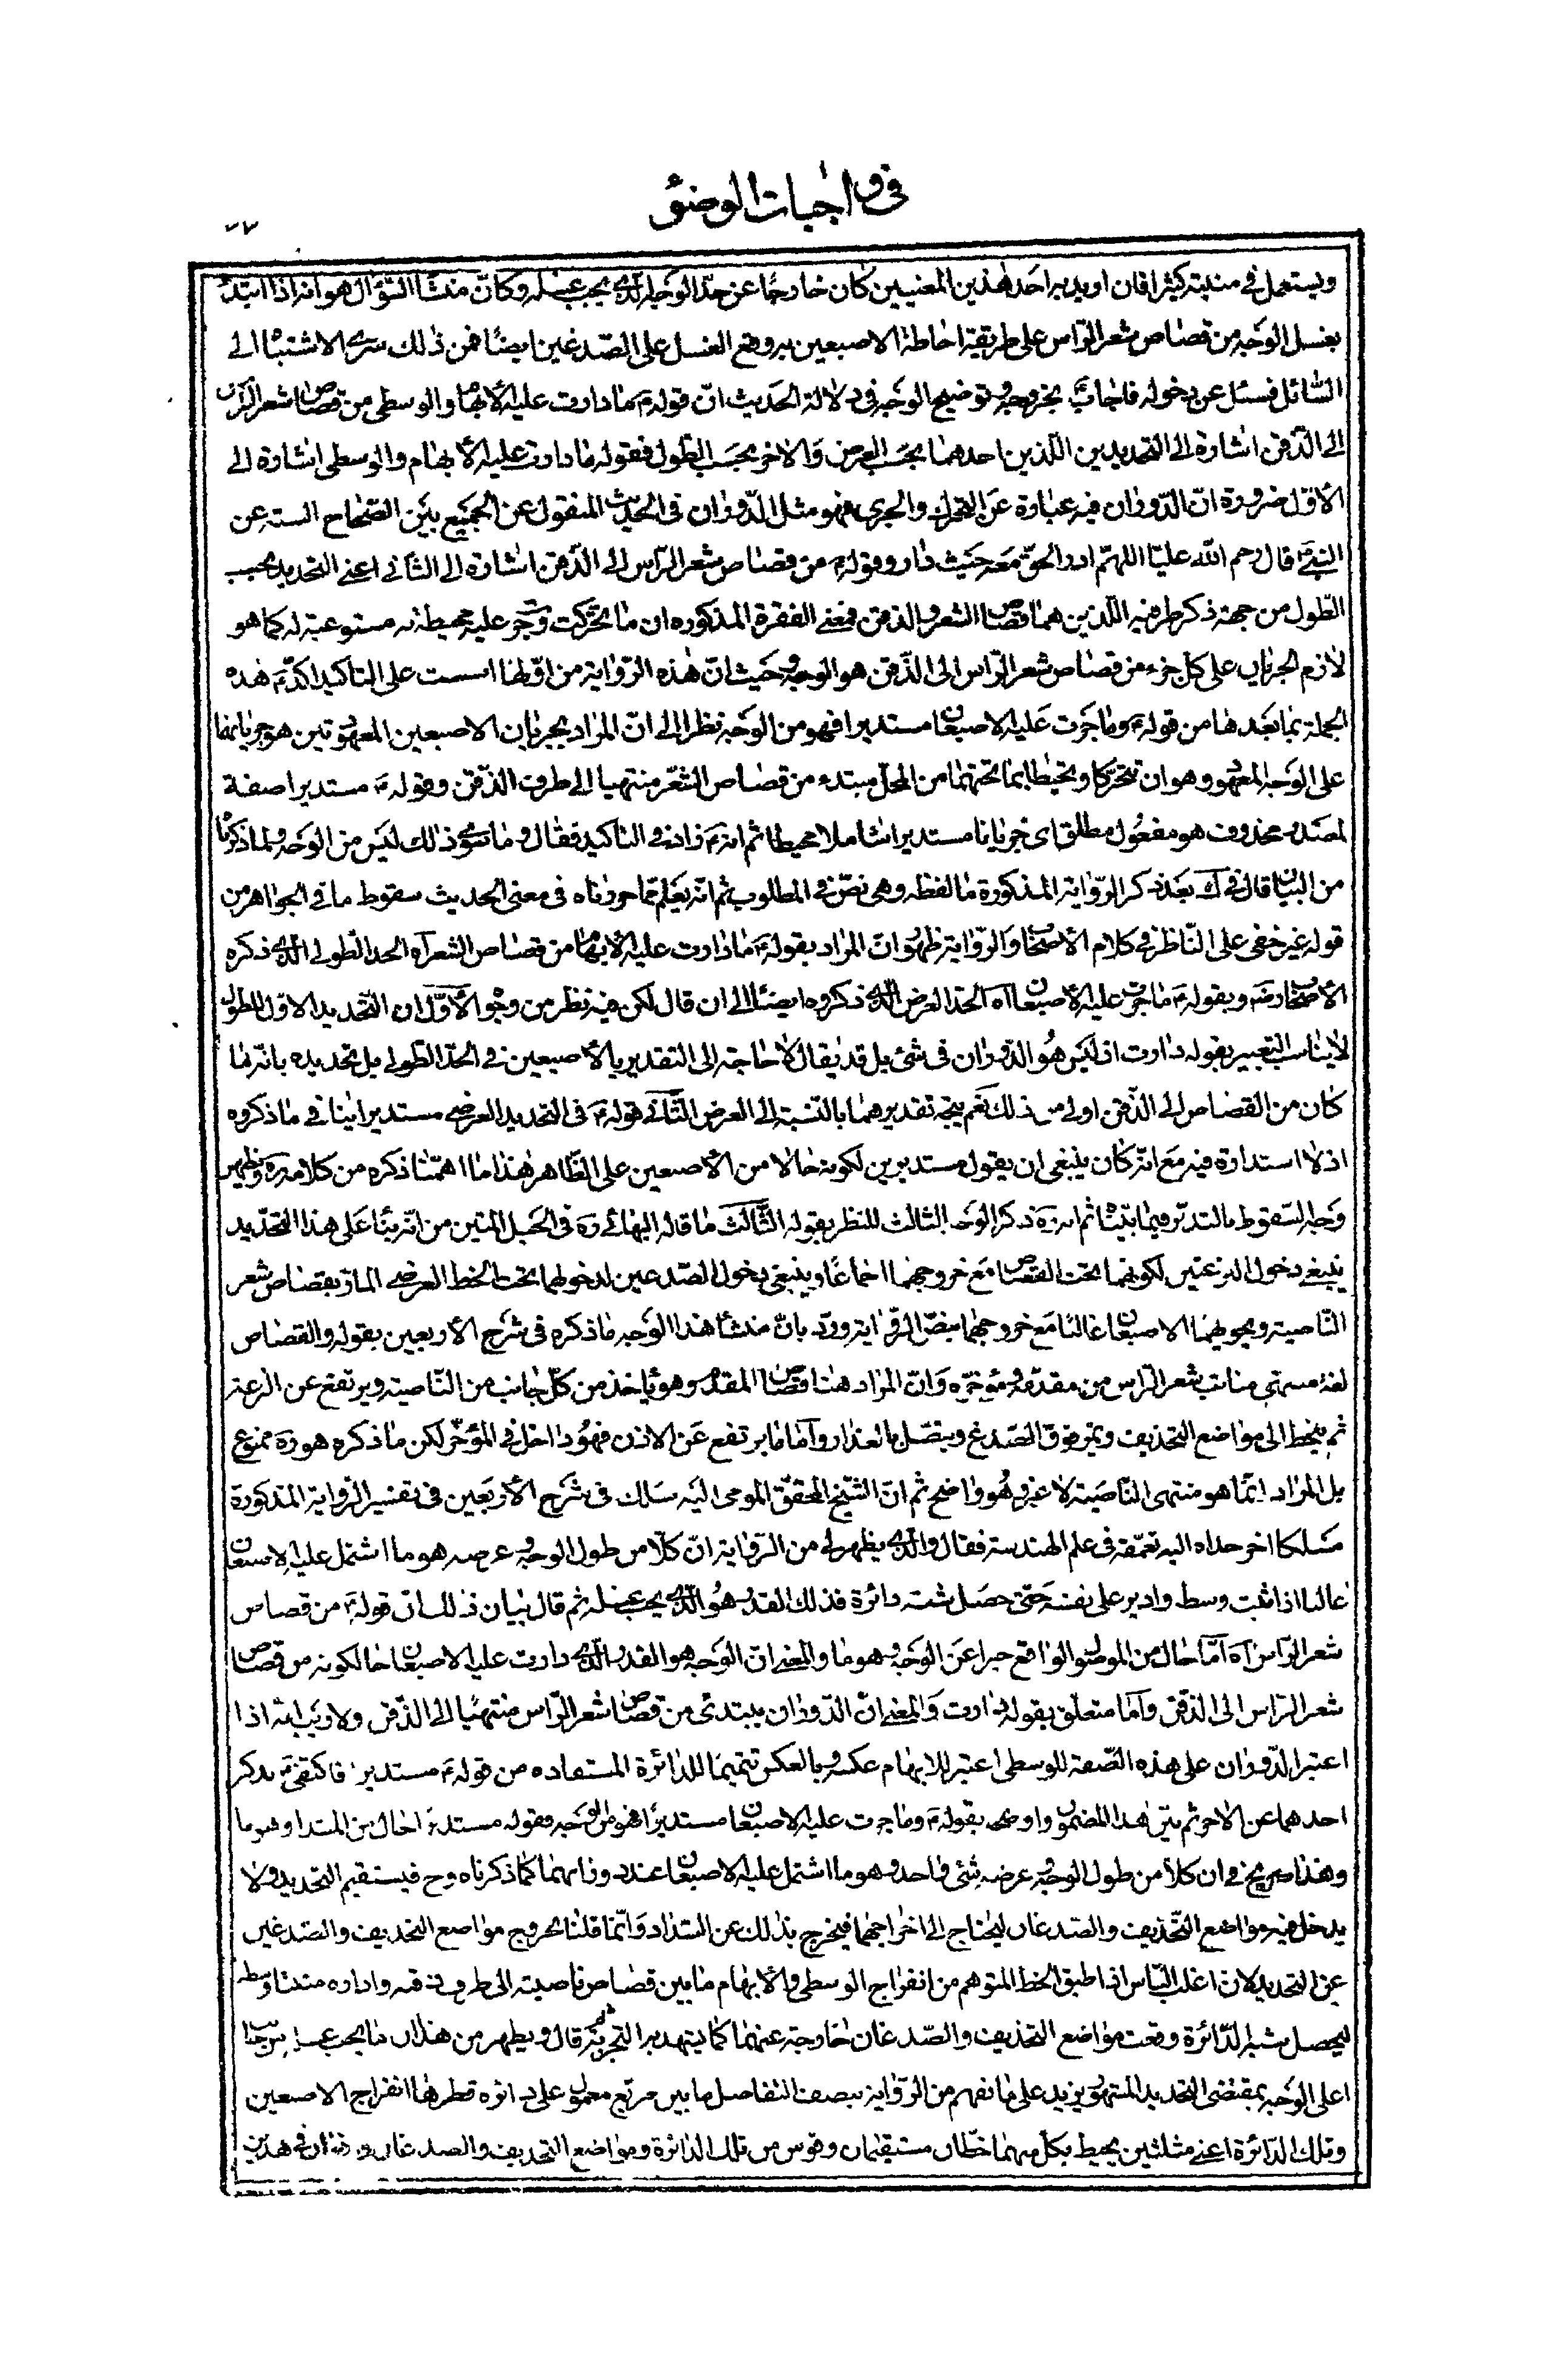 في واجبات الوضوء
٧٧
ويستعمل في منبته كثيرا فان اريد به احد هذين المعنيين كان خارجا عن حد الوجه الذي يجب غسله وكان منشأ السؤال هو انه اذا ابتدء
بغسل الوجه من قصاص شعر الراس على طريقة احاطة الاصبعين به وقع الغسل على الصدغين ايضا فمن ذلك سرى الاشتباه الى
السائل فسئل عن دخوله فاجاب ع بخروجه وتوضيح الوجه في دلالة الحديث ان قوله ع ما دارت عليه الابهام والوسطى من قصاص شعر الراس
الى الذقن اشارة الى التحديدين اللذين احدهما بحسب العرض والاخر بحسب الطول فقوله ما دارت عليه الابهام والوسطى اشارة الى
الاول ضرورة ان الدوران فيه عبارة عن التحرك والجرى فهو مثل الدوران في الحديث المنقول عن الجميع بين الصحاح الستة عن
النبي ص قال رحم الله عليا اللهم ادر الحق معه حيث دار وقوله ع من قصاص شعر الراس الى الذقن اشارة الى الثاني اعني التحديد بحسب
الطول من جهة ذكر طرفيه اللذين هما قصاص الشعر والذقن فمعنى الفقرة المذكورة ان ما تحركت وجرت عليه محيطة به مستوعبة له كما هو
لازم الجريان على كل جزء من قصاص شعر الراس الى الذقن هو الوجه وحيث ان هذه الرواية من اولها اسست على التاكيد اكد ع هذه
الجملة بما بعدها من قوله ع وما جرت عليه الاصبعان مستديرا فهو من الوجه نظرا الى ان المراد بجريان الاصبعين المعهودتين هو جريانهما
على الوجه المعهود وهو ان تتحركا وتحيطا بما تحتهما من المحل مبتدء من قصاص الشعر منتهيا الى طرف الذقن وقوله ع مستديرا صفة
لمصدر محذوف هو مفعول مطلق اى جريانا مستديرا شاملا محيطا ثم انه ع زاد في التاكيد فقال وما سوى ذلك ليس من الوجه ولما ذكرنا
من البيان قال في ك بعد ذكر الرواية المذكورة ما لفظه وهي نص في المطلوب ثم انه يعلم مما حررناه في معنى الحديث سقوط ما في الجواهر من
قوله غير خفي على الناظر في كلام الاصحاب والرواية ظهور ان المراد بقوله ع ما دارت عليه الابهام من قصاص الشعر آه الحد الطولي الذي ذكره
الاصحاب رض وبقوله ع ما جرت عليه الاصبعان آه الحد العرضي الذي ذكروه ايضا الى ان قال لكن فيه نظر من وجوه الاول ان التحديد الاول للطول
لا يناسب التعبير بقوله دارت اذ ليس هو الدوران في شئ بل قد يقال لا حاجة الى التقدير بالاصبعين في الحد الطولي بل تحديده بانه ما
كان من القصاص الى الذقن اولى من ذلك نعم يتجه تقديرهما بالنسبة الى العرض الثاني قوله ع في التحديد العرضي مستديرا ينافي ما ذكروه
اذ لا استدارة فيه مع انه كان ينبغي ان يقول مستديرين لكونه حالا من الاصبعين على الظاهر هذا ما اهمنا ذكره من كلامه ره ويظهر
وجه السقوط بالتدبر فيما بيناه ثم انه ره ذكر الوجه الثالث للنظر بقوله الثالث ما قاله البهائي ره في الحبل المتين من انه بناء على هذا التحديد
ينبغي دخول النزعتين لكونهما تحت القصاص مع خروجهما اجماعا وينبغي دخول الصدغين لدخولهما تحت الخط العرضي المار بقصاص شعر
الناصية ويحويهما الاصبعان غالبا مع خروجهما بنص الرواية ورد بان منشأ هذا الوجه ما ذكره في شرح الاربعين بقوله والقصاص
لغة مسمى منابت شعر الراس من مقدمه ومؤخره وان المراد هنا قصاص المقدم وهو ياخذ من كل جانب من الناصية ويرتفع عن النزعة
ثم ينحط الى مواضع التحذيف ويمر فوق الصدغ ويتصل بالعذار واما ما يرتفع عن الاذن فهو داخل في المؤخر لكن ما ذكره هو ره ممنوع
بل المراد انما هو منتهى الناصية لا غير وهو واضح ثم ان الشيخ المحقق المومى اليه سلك في شرح الاربعين في تفسير الرواية المذكورة
مسلكا اخر حداه اليه تعمقه في علم الهندسة فقال والذي يظهر لي من الرواية ان كلا من طول الوجه وعرضه هو ما اشتمل عليه الاصبعان
غالبا اذا ثبت وسطه وادير على نفسه حتى حصل شبه دائرة فذلك القدر هو الذي يجب غسله ثم قال بيان ذلك ان قوله ع من قصاص
شعر الراس آه اما حال من الموصول الواقع خبرا عن الوجه وهو ما والمعنى ان الوجه هو القدر الذي دارت عليه الاصبعان حالكونه من قصاص
شعر الراس الى الذقن واما متعلق بقوله دارت والمعنى ان الدوران يبتدئ من قصاص شعر الراس منتهيا الى الذقن ولا ريب انه اذا
اعتبر الدوران على هذه الصفة للوسطى اعتبر للابهام عكسه وبالعكس تتميما للدائرة المستفاده من قوله ع مستديرا فاكتفى ع بذكر
احدهما عن الاخر ثم بين هذا المضمون واوضحه بقوله ع وما جرت عليه الاصبعان مستديرا فهو من الوجه فقوله مستديرا حال من المبتدا وهو ما
وهذا صريح في ان كلا من طول الوجه وعرضه شئ واحد وهو ما اشتمل عليه الاصبعان عند دورانهما كما ذكرناه وح فيستقيم التحديد ولا
يدخل فيه مواضع التحذيف والصدغان ليحتاج الى اخراجهما فيخرج بذلك عن السداد وانما قلنا بخروج مواضع التحذيف والصدغين
عن التحديد لان اغلب الناس اذا طبق الخط المتوهم من انفراج الوسطى والابهام ما بين قصاص ناصيته الى طرف ذقنه واداره مثبتا وسطه
ليحصل شبه الدائرة وقعت مواضع التحذيف والصدغان خارجة عنهما كما يشهد به التجربة ثم قال ويظهر من هذا ان ما يجب غسله من جنبي
اعلى الوجه بمقتضى التحديد المشهور يزيد على ما نفهم من الرواية بنصف التفاضل ما بين مربع معمول على دائرة قطرها انفراج الاصبعين
وتلك الدائرة اعني مثلثين يحيط بكل منهما خطان مستقيمان وقوس من تلك الدائرة ومواضع التحذيف والصدغان واقعان في هذين